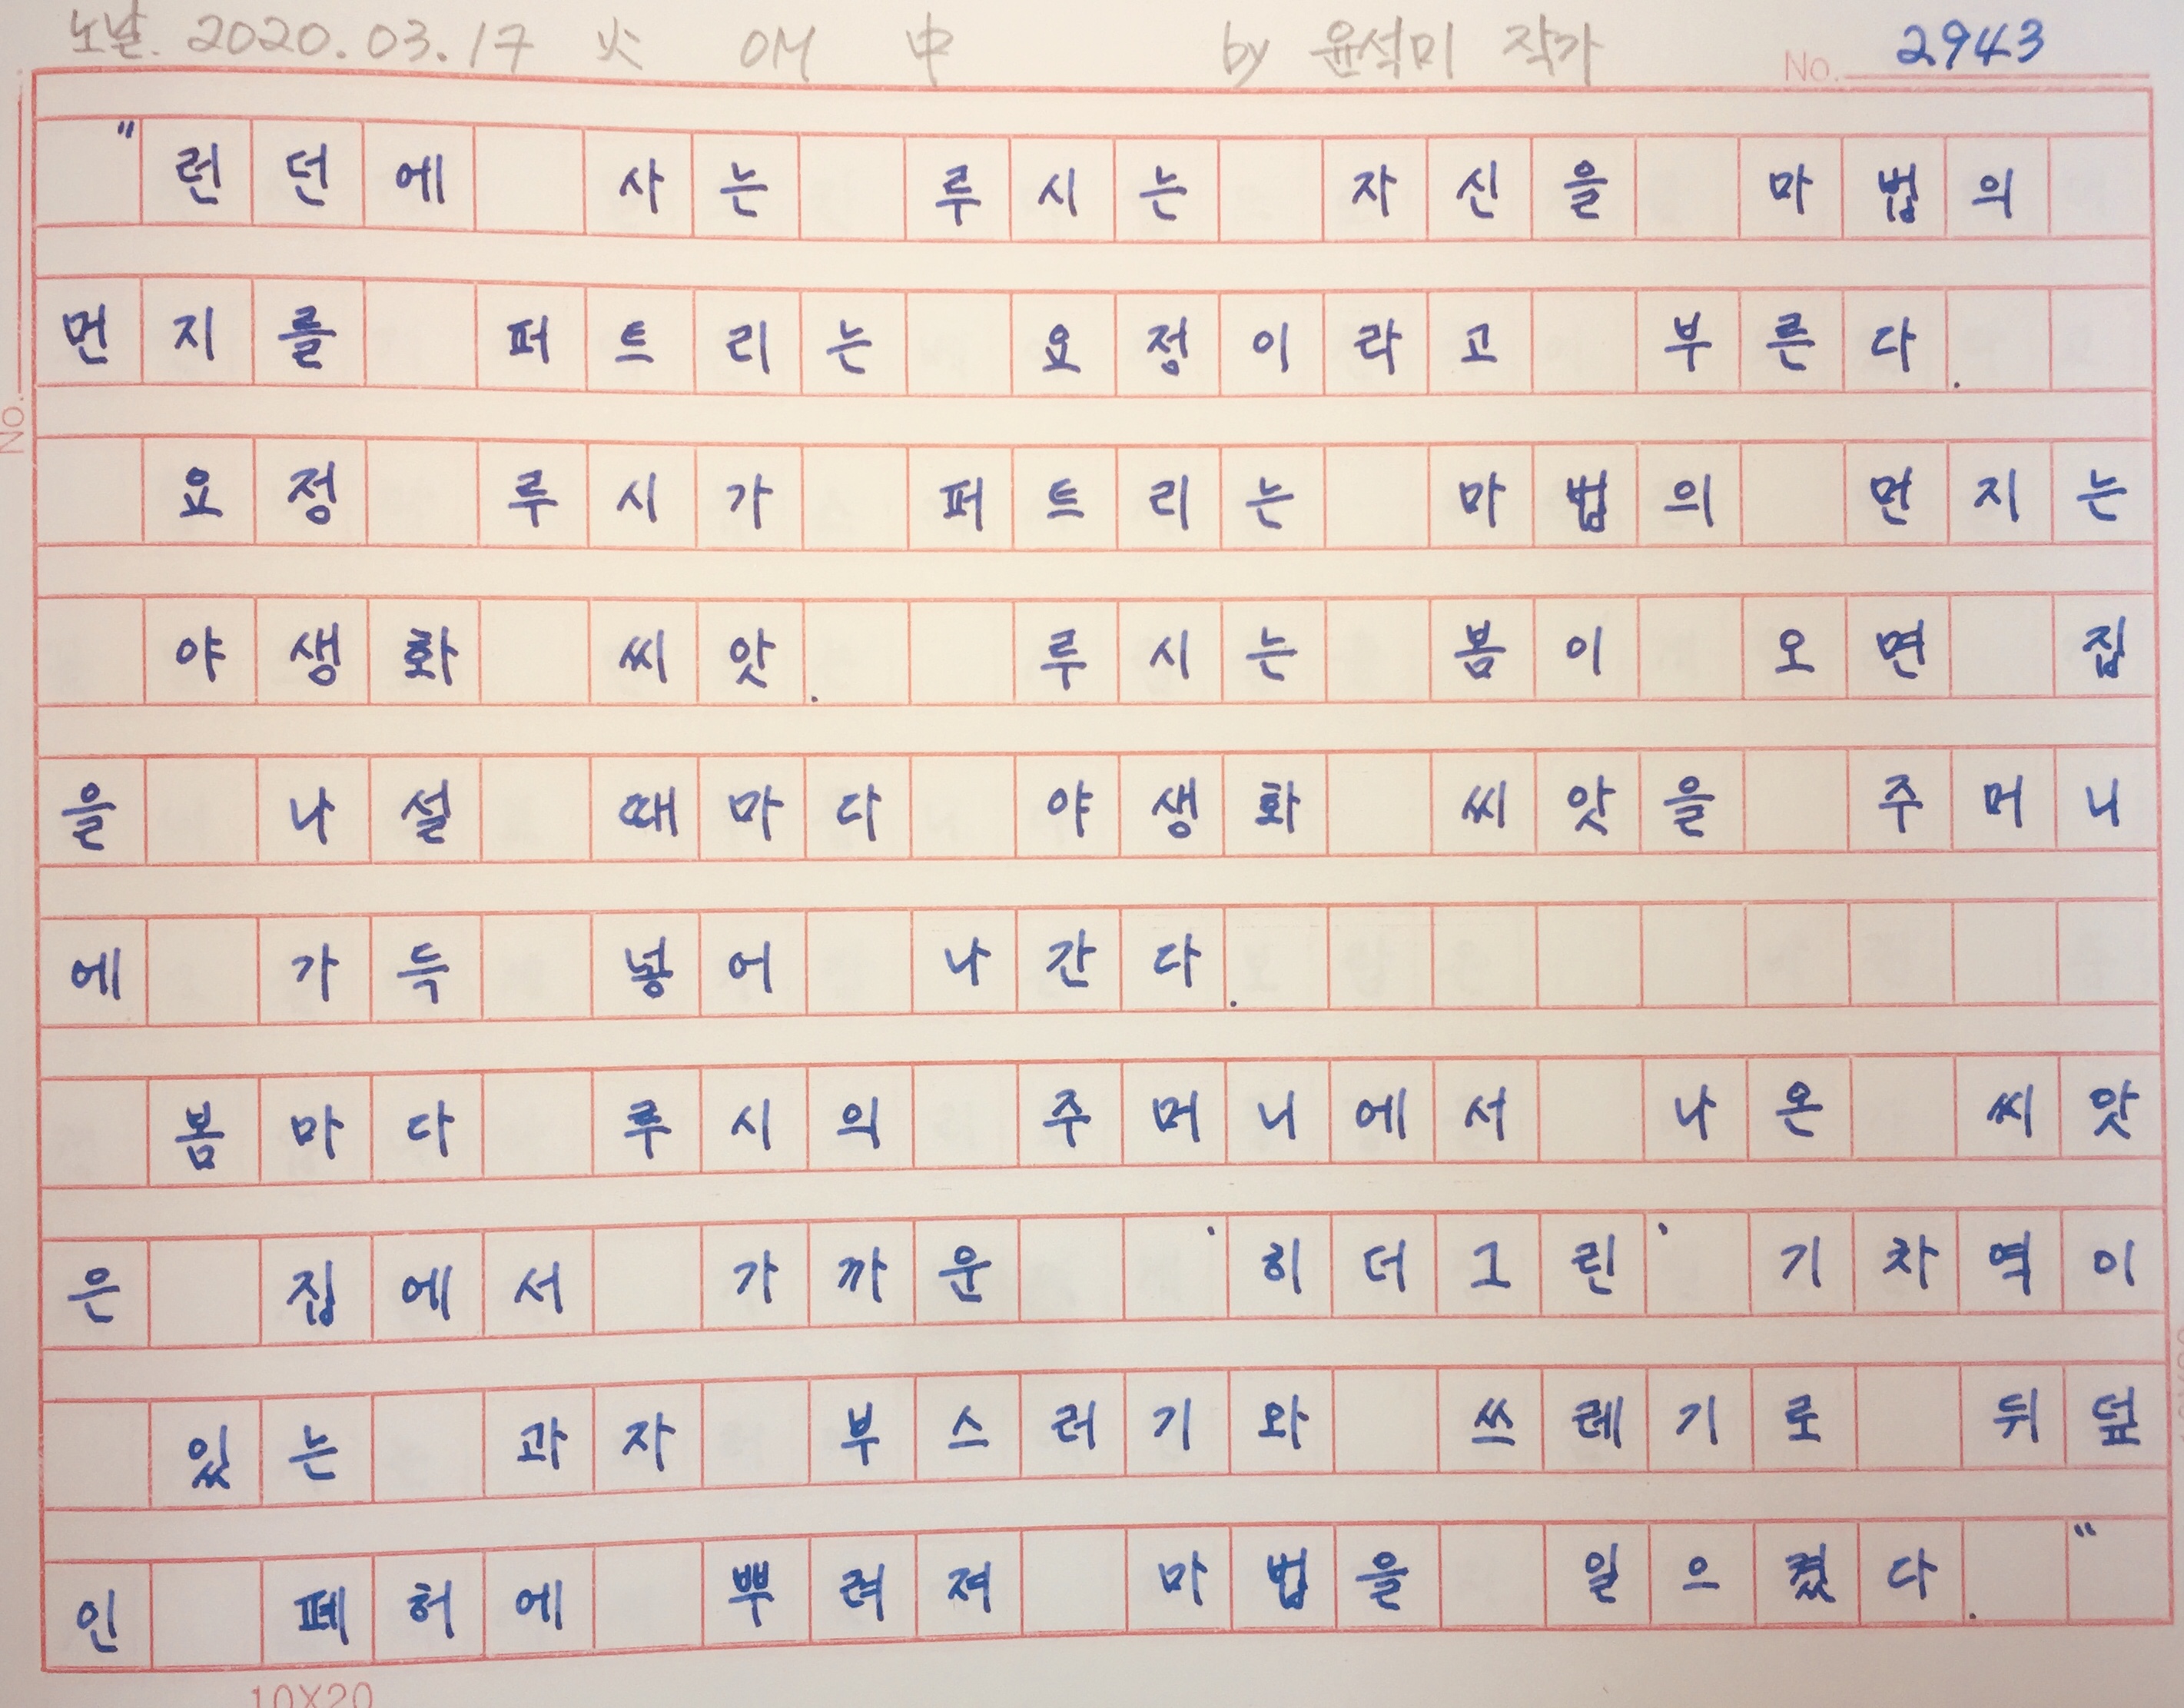 노날. 2020.03.17 火 OM 中 by 윤석미 작가 No. 2943
"런던에 사는 루시는 자신을 마법의
먼지를 퍼트리는 요정이라고 부른다.
요정 루시가 퍼트리는 마법의 먼지는
야생화 씨앗. 루시는 봄이 오면 집
을 나설 때마다 야생화 씨앗을 주머니
에 가득 넣어 나간다.
봄마다 루시의 주머니에서 나온 씨앗
은 집에서 가까운 '히더그린' 기차역이
있는 과자 부스러기와 쓰레기로 뒤덮
인 폐허에 뿌려져 마법을 일으켰다."
No.
10X20